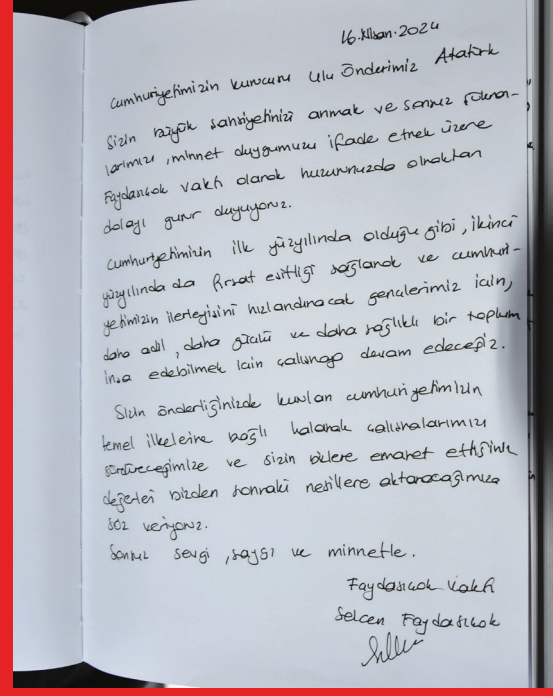 16.Nisan.2024
Cumhuriyetimizin kurucusu Ulu Önderimiz Atatürk
Sizin büyük şahsiyetinizi anmak ve sonsuz şükran-
larımızı, minnet duygumuzu ifade etmek üzere
Faydasıçok Vakfı olarak huzurunuzda olmaktan
dolayı gurur duyuyoruz.
Cumhuriyetimizin ilk yüzyılında olduğu gibi, ikinci
yüzyılında da fırsat eşitliği sağlanarak ve cumhuri-
yetimizin ilerleyişini hızlandıracak gençlerimiz için,
daha adil, daha güçlü ve daha sağlıklı bir toplum
inşa edebilmek için çalışmaya devam edeceğiz.
Sizin önderliğinizde kurulan cumhuriyetimizin
temel ilkelerine bağlı kalarak çalışmalarımızı
sürdüreceğimize ve sizin bizlere emanet ettiğiniz
değerleri bizden sonraki nesillere aktaracağımıza
söz veriyoruz.
Sonsuz sevgi, saygı ve minnetle.
Faydasıçok Vakfı
Selcen Faydasıçok